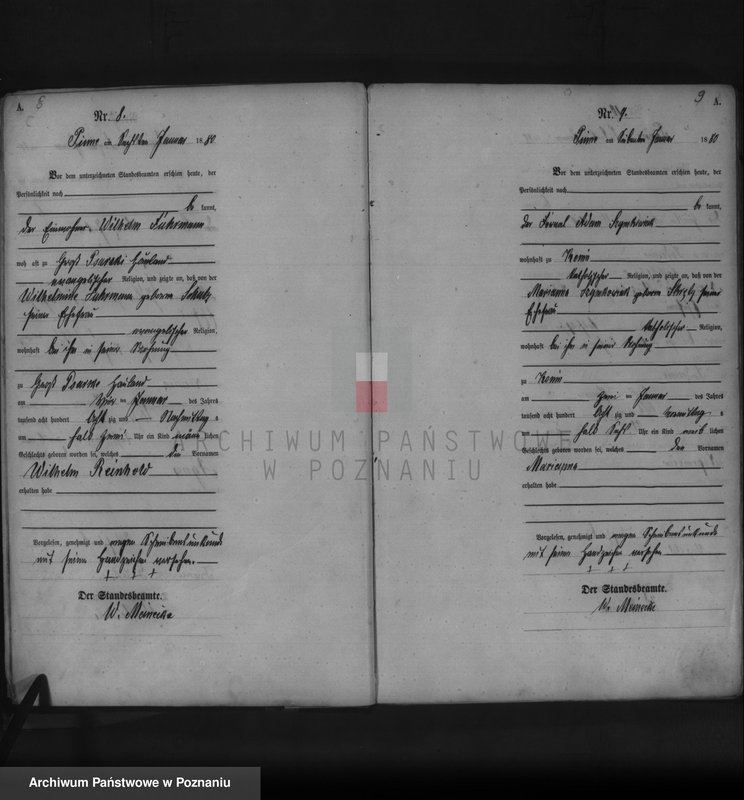 A. 8
Nr. 8.
Pinne am Sechsten Januar 1880
Vor dem unterzeichneten Standesbeamten erschien heute, der
Persönlichkeit nach
be kannt,
der Einwohner Wilhelm Fuhrmann
wohnhaft zu Groß Psarski Hauland
evangelischer Religion, und zeigte an, daß von der
Wilhelmine Fuhrmann geborene Schulz
seiner Ehefrau
evangelischer Religion,
wohnhaft bei ihm in seiner Wohnung
zu Groß Hauland
am Januar des Jahres
tausend acht hundert Acht zig und Nachmittag s
um halb Uhr ein Kind männ lichen
Geschlechts geboren worden sei, welches die Vornamen
Wilhelm Reinhold
erhalten habe
Vorgelesen, genehmigt und wegen Schreibensunkunde
mit seinem Handzeichen versehen.
+ + +
Der Standesbeamte.
W. Meinecke
9 A.
Nr. 9.
Pinne am Siebenten Januar 1880
Vor dem unterzeichneten Standesbeamten erschien heute, der
Persönlichkeit nach
be kannt,
der Adam
wohnhaft zu Konin
katholischer Religion, und zeigte an, daß von der
Marianna geborene seiner
Ehefrau
katholischer Religion,
wohnhaft bei ihm in seiner Wohnung
zu Konin
am Januar des Jahres
tausend acht hundert Acht zig und Vormittag s
um halb Uhr ein Kind weib lichen
Geschlechts geboren worden sei, welches den Vornamen
Marianna
erhalten habe
Vorgelesen, genehmigt und wegen Schreibensunkunde
mit seinem Handzeichen versehen
+ + +
Der Standesbeamte.
W. Meinecke
ARCHIWUM PAŃSTWOWE
W POZNANIU
Archiwum Państwowe w Poznaniu